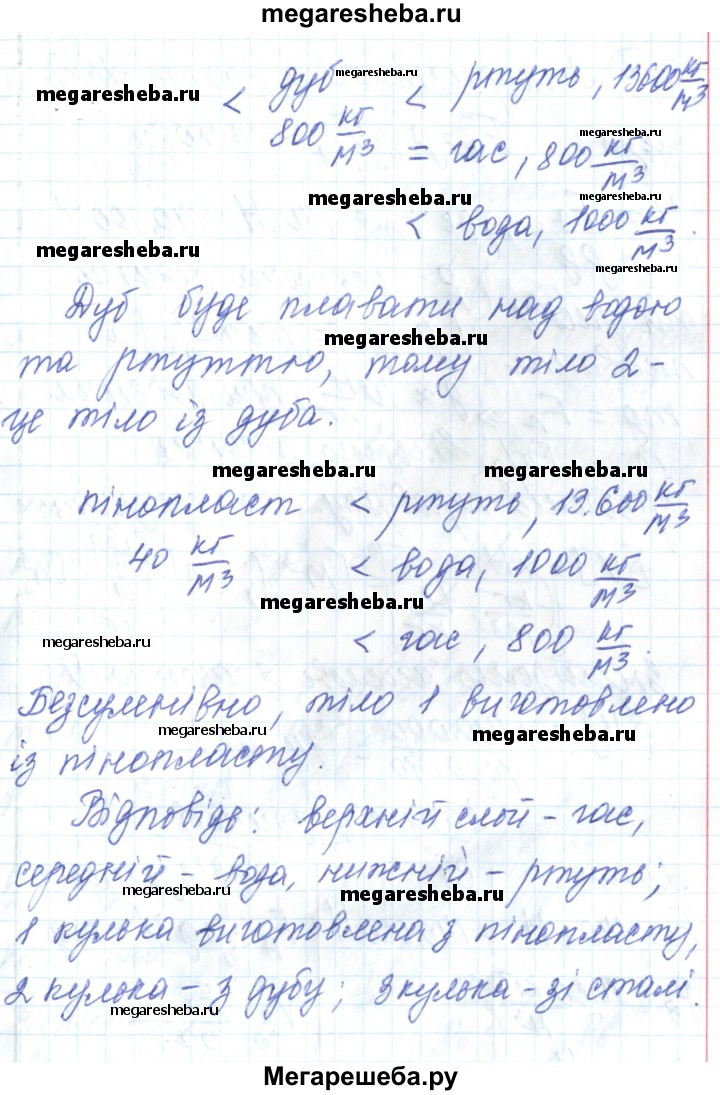 megaresheba.ru
дуб megaresheba.ru < ртуть, 13600 кг/м³
megaresheba.ru <
800 кг/м³ = гас, 800 кг/м³
megaresheba.ru
megaresheba.ru
megaresheba.ru < вода, 1000 кг/м³.
megaresheba.ru
megaresheba.ru
Дуб буде плавати над водою
megaresheba.ru
та ртуттю, тому тіло 2 -
це тіло із дуба.
megaresheba.ru megaresheba.ru
пінопласт < ртуть, 13.600 кг/м³
40 кг/м³ < вода, 1000 кг/м³
megaresheba.ru
megaresheba.ru < гас, 800 кг/м³.
Безсумнівно, тіло 1 виготовлено
megaresheba.ru megaresheba.ru
із пінопласту.
Відповідь: верхній слой - гас,
середній - вода, нижній - ртуть;
megaresheba.ru megaresheba.ru
1 кулька виготовлена з пінопласту,
2 кулька - з дубу; 3 кулька - зі сталі.
megaresheba.ru
Мегарешеба.ру